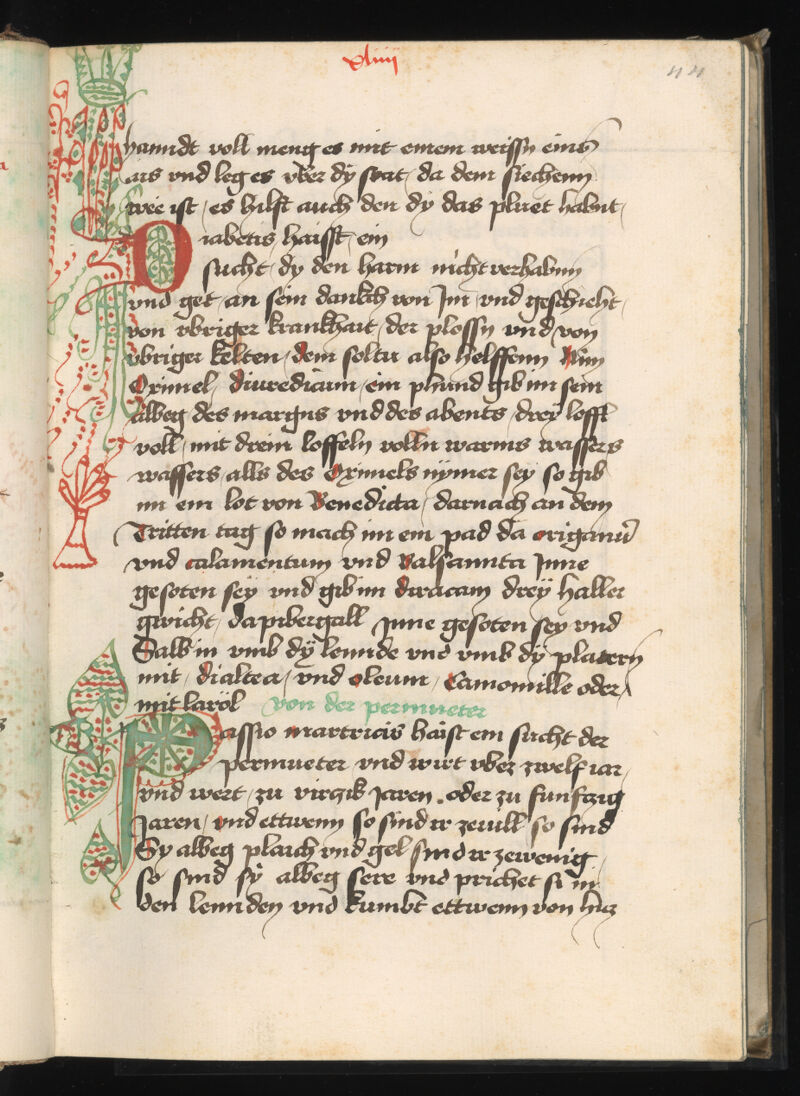 xliiij
44
hanndt voll meng es mit einem weissen eins
ars vnd leg es vber dy stat da dem siechenn
wee ist / es hilft auch den dy das pluet habnt
Diabetis haisst ein
sucht dy den harm nicht verhabnn
vnd get an sein dankch von Im vnd geschieht
von vbriger krankhait der plossn vnd von
vbriger kelten / dem soltu also helffenn Nim
Oximel diureticum ein phund gib im sein
albeg des margns vnd des abents drey loffl
voll mit drein loffeln volln warms wassers
wassers alls des Oximels nymer sey so gib
im ein lot von Benedicta darnach an dem
Tritten tag so mach im ein pad da origanum
vnd calamentum vnd Balsamita Inne
gesoten sey vnd gib im drey haller
gwicht da pibergall Inne gesoten sey vnd
Salb in vmb dy lennde vnd vmb dy platern
mit dialtea vnd oleum Camomille oder
mit laröl von der permueter
Passio martricis haist ein sucht der
permueter vnd wirt vber zwelf iar
vnd wert zu virczik Jaren oder zu funfzig
Jaren / vnd ettwenn so sind ir zeuill so sind
Sy albeg plaich vnd gel sind ir zewenig
so sind sy albeg sere vnd prichet si in
den lennden vnd kumbt ettwenn von hicz